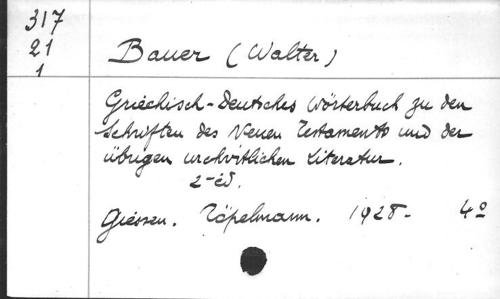 317
21
1
Bauer (Walter)
Griechisch-Deutsches Wörterbuch zu den
Schriften des Neuen Testaments und der
übrigen urchristlichen Literatur.
2-éd.
Giessen. Töpelmann. 1928- 4º